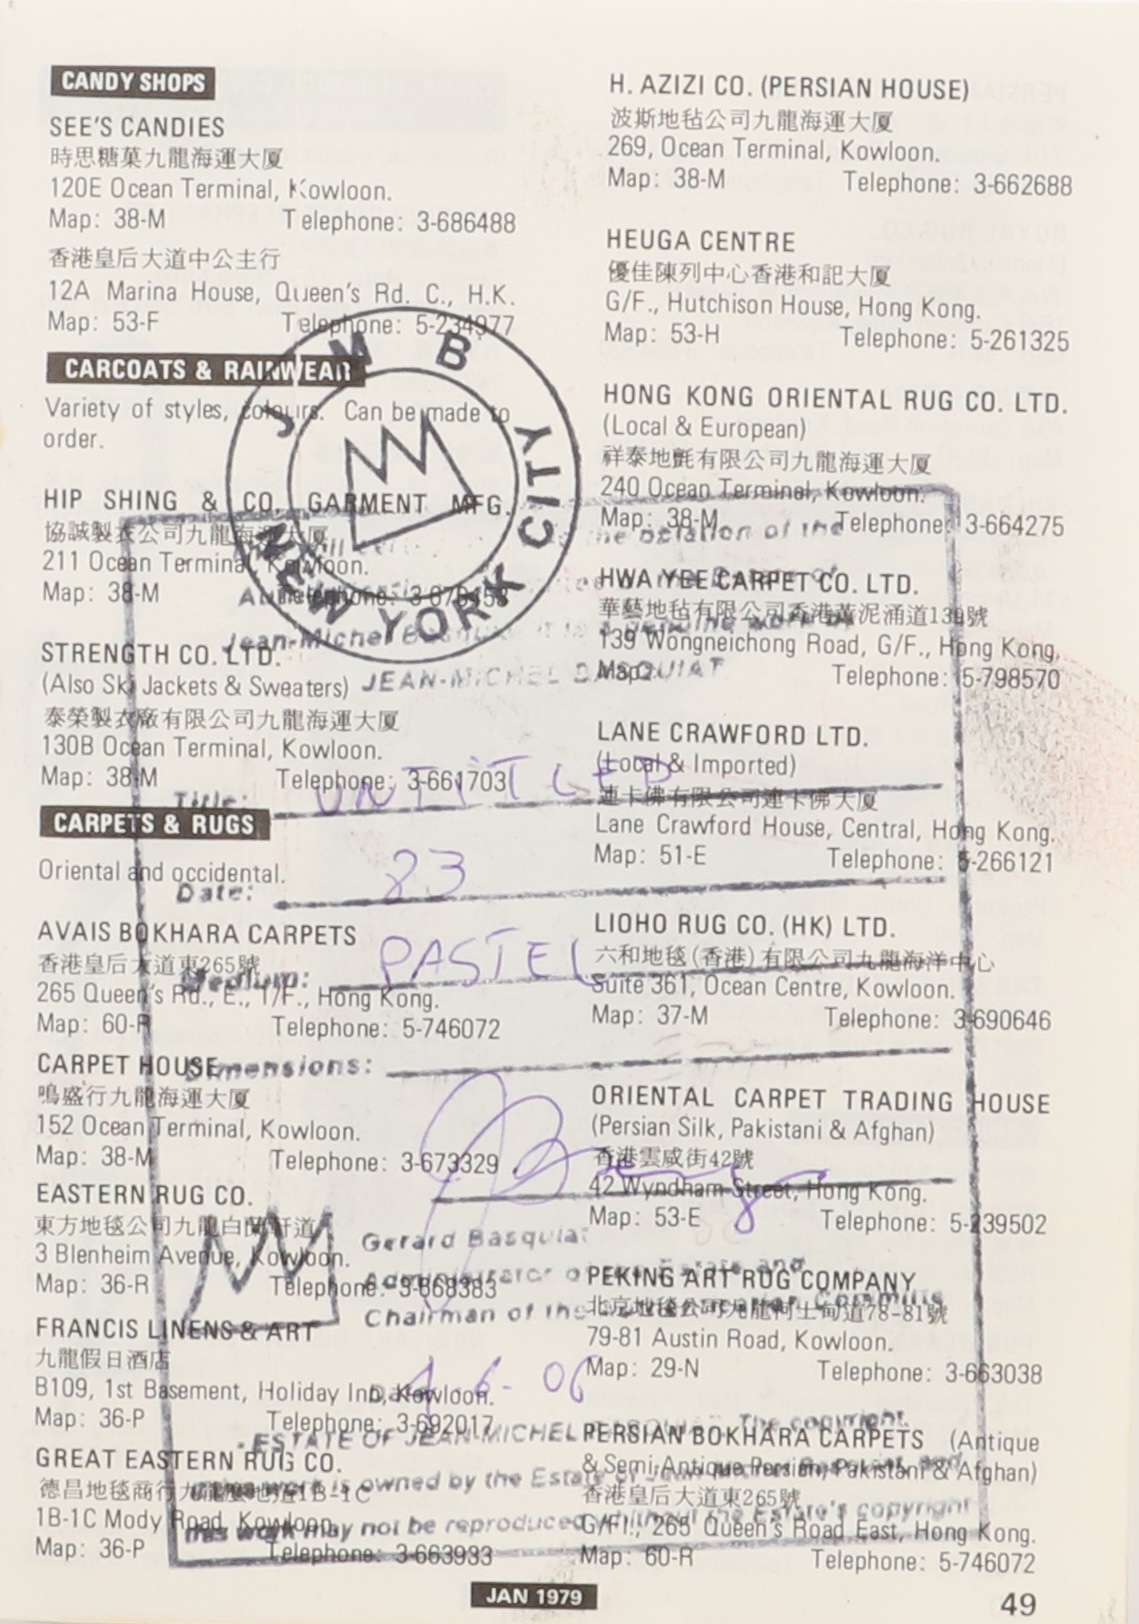 CANDY SHOPS
SEE'S CANDIES
時思糖菓九龍海運大厦
120E Ocean Terminal, Kowloon.
Map: 38-M Telephone: 3-686488
香港皇后大道中公主行
12A Marina House, Queen's Rd. C., H.K.
Map: 53-F Telephone: 5-234977
CARCOATS & RAINWEAR
Variety of styles, colours. Can be made to
order.
HIP SHING & CO. GARMENT MFG.
協誠製衣公司九龍海運大厦
211 Ocean Terminal, Kowloon.
Map: 38-M Telephone: 3-670458
STRENGTH CO. LTD.
(Also Ski Jackets & Sweaters)
泰榮製衣廠有限公司九龍海運大厦
130B Ocean Terminal, Kowloon.
Map: 38-M Telephone: 3-661703
CARPETS & RUGS
Oriental and occidental.
AVAIS BOKHARA CARPETS
香港皇后大道東265號
265 Queen's Rd., E., 1/F., Hong Kong.
Map: 60-R Telephone: 5-746072
CARPET HOUSE
鳴盛行九龍海運大厦
152 Ocean Terminal, Kowloon.
Map: 38-M Telephone: 3-673329
EASTERN RUG CO.
東方地毯公司九龍白蘭軒道
3 Blenheim Avenue, Kowloon.
Map: 36-R Telephone: 3-668383
FRANCIS LINENS & ART
九龍假日酒店
B109, 1st Basement, Holiday Inn, Kowloon.
Map: 36-P Telephone: 3-692017
GREAT EASTERN RUG CO.
德昌地毯商行九龍麼地道1B-1C
1B-1C Mody Road, Kowloon.
Map: 36-P Telephone: 3-663933
H. AZIZI CO. (PERSIAN HOUSE)
波斯地毡公司九龍海運大厦
269, Ocean Terminal, Kowloon.
Map: 38-M Telephone: 3-662688
HEUGA CENTRE
優佳陳列中心香港和記大厦
G/F., Hutchison House, Hong Kong.
Map: 53-H Telephone: 5-261325
HONG KONG ORIENTAL RUG CO. LTD.
(Local & European)
祥泰地氈有限公司九龍海運大厦
240 Ocean Terminal, Kowloon.
Map: 38-M Telephone: 3-664275
HWA YEE CARPET CO. LTD.
華藝地毡有限公司香港黃泥涌道139號
139 Wongneichong Road, G/F., Hong Kong.
Map: Telephone: 5-798570
LANE CRAWFORD LTD.
(Local & Imported)
連卡佛有限公司連卡佛大厦
Lane Crawford House, Central, Hong Kong.
Map: 51-E Telephone: 5-266121
LIOHO RUG CO. (HK) LTD.
六和地毯(香港)有限公司九龍海洋中心
Suite 361, Ocean Centre, Kowloon.
Map: 37-M Telephone: 3-690646
ORIENTAL CARPET TRADING HOUSE
(Persian Silk, Pakistani & Afghan)
香港雲咸街42號
42 Wyndham Street, Hong Kong.
Map: 53-E Telephone: 5-239502
PEKING ART RUG COMPANY
北京地毯公司九龍柯士甸道78-81號
79-81 Austin Road, Kowloon.
Map: 29-N Telephone: 3-663038
PERSIAN BOKHARA CARPETS (Antique
& Semi-Antique Persian, Pakistani & Afghan)
香港皇后大道東265號
G/Fl., 265 Queen's Road East, Hong Kong.
Map: 60-R Telephone: 5-746072
JMB
NEW YORK CITY
the opinion of the
Jean-Michel
JEAN-MICHEL BASQUIAT
Title: UNTITLED
Date: 83
Medium: PASTEL
Dimensions:
Gerard Basquiat
Administrator of the Estate and
Chairman of the Authentication Committee
6-06
ESTATE OF JEAN-MICHEL BASQUIAT. The copyright
work is owned by the Estate of Jean-Michel Basquiat, and
this work may not be reproduced without the Estate's copyright
JAN 1979
49